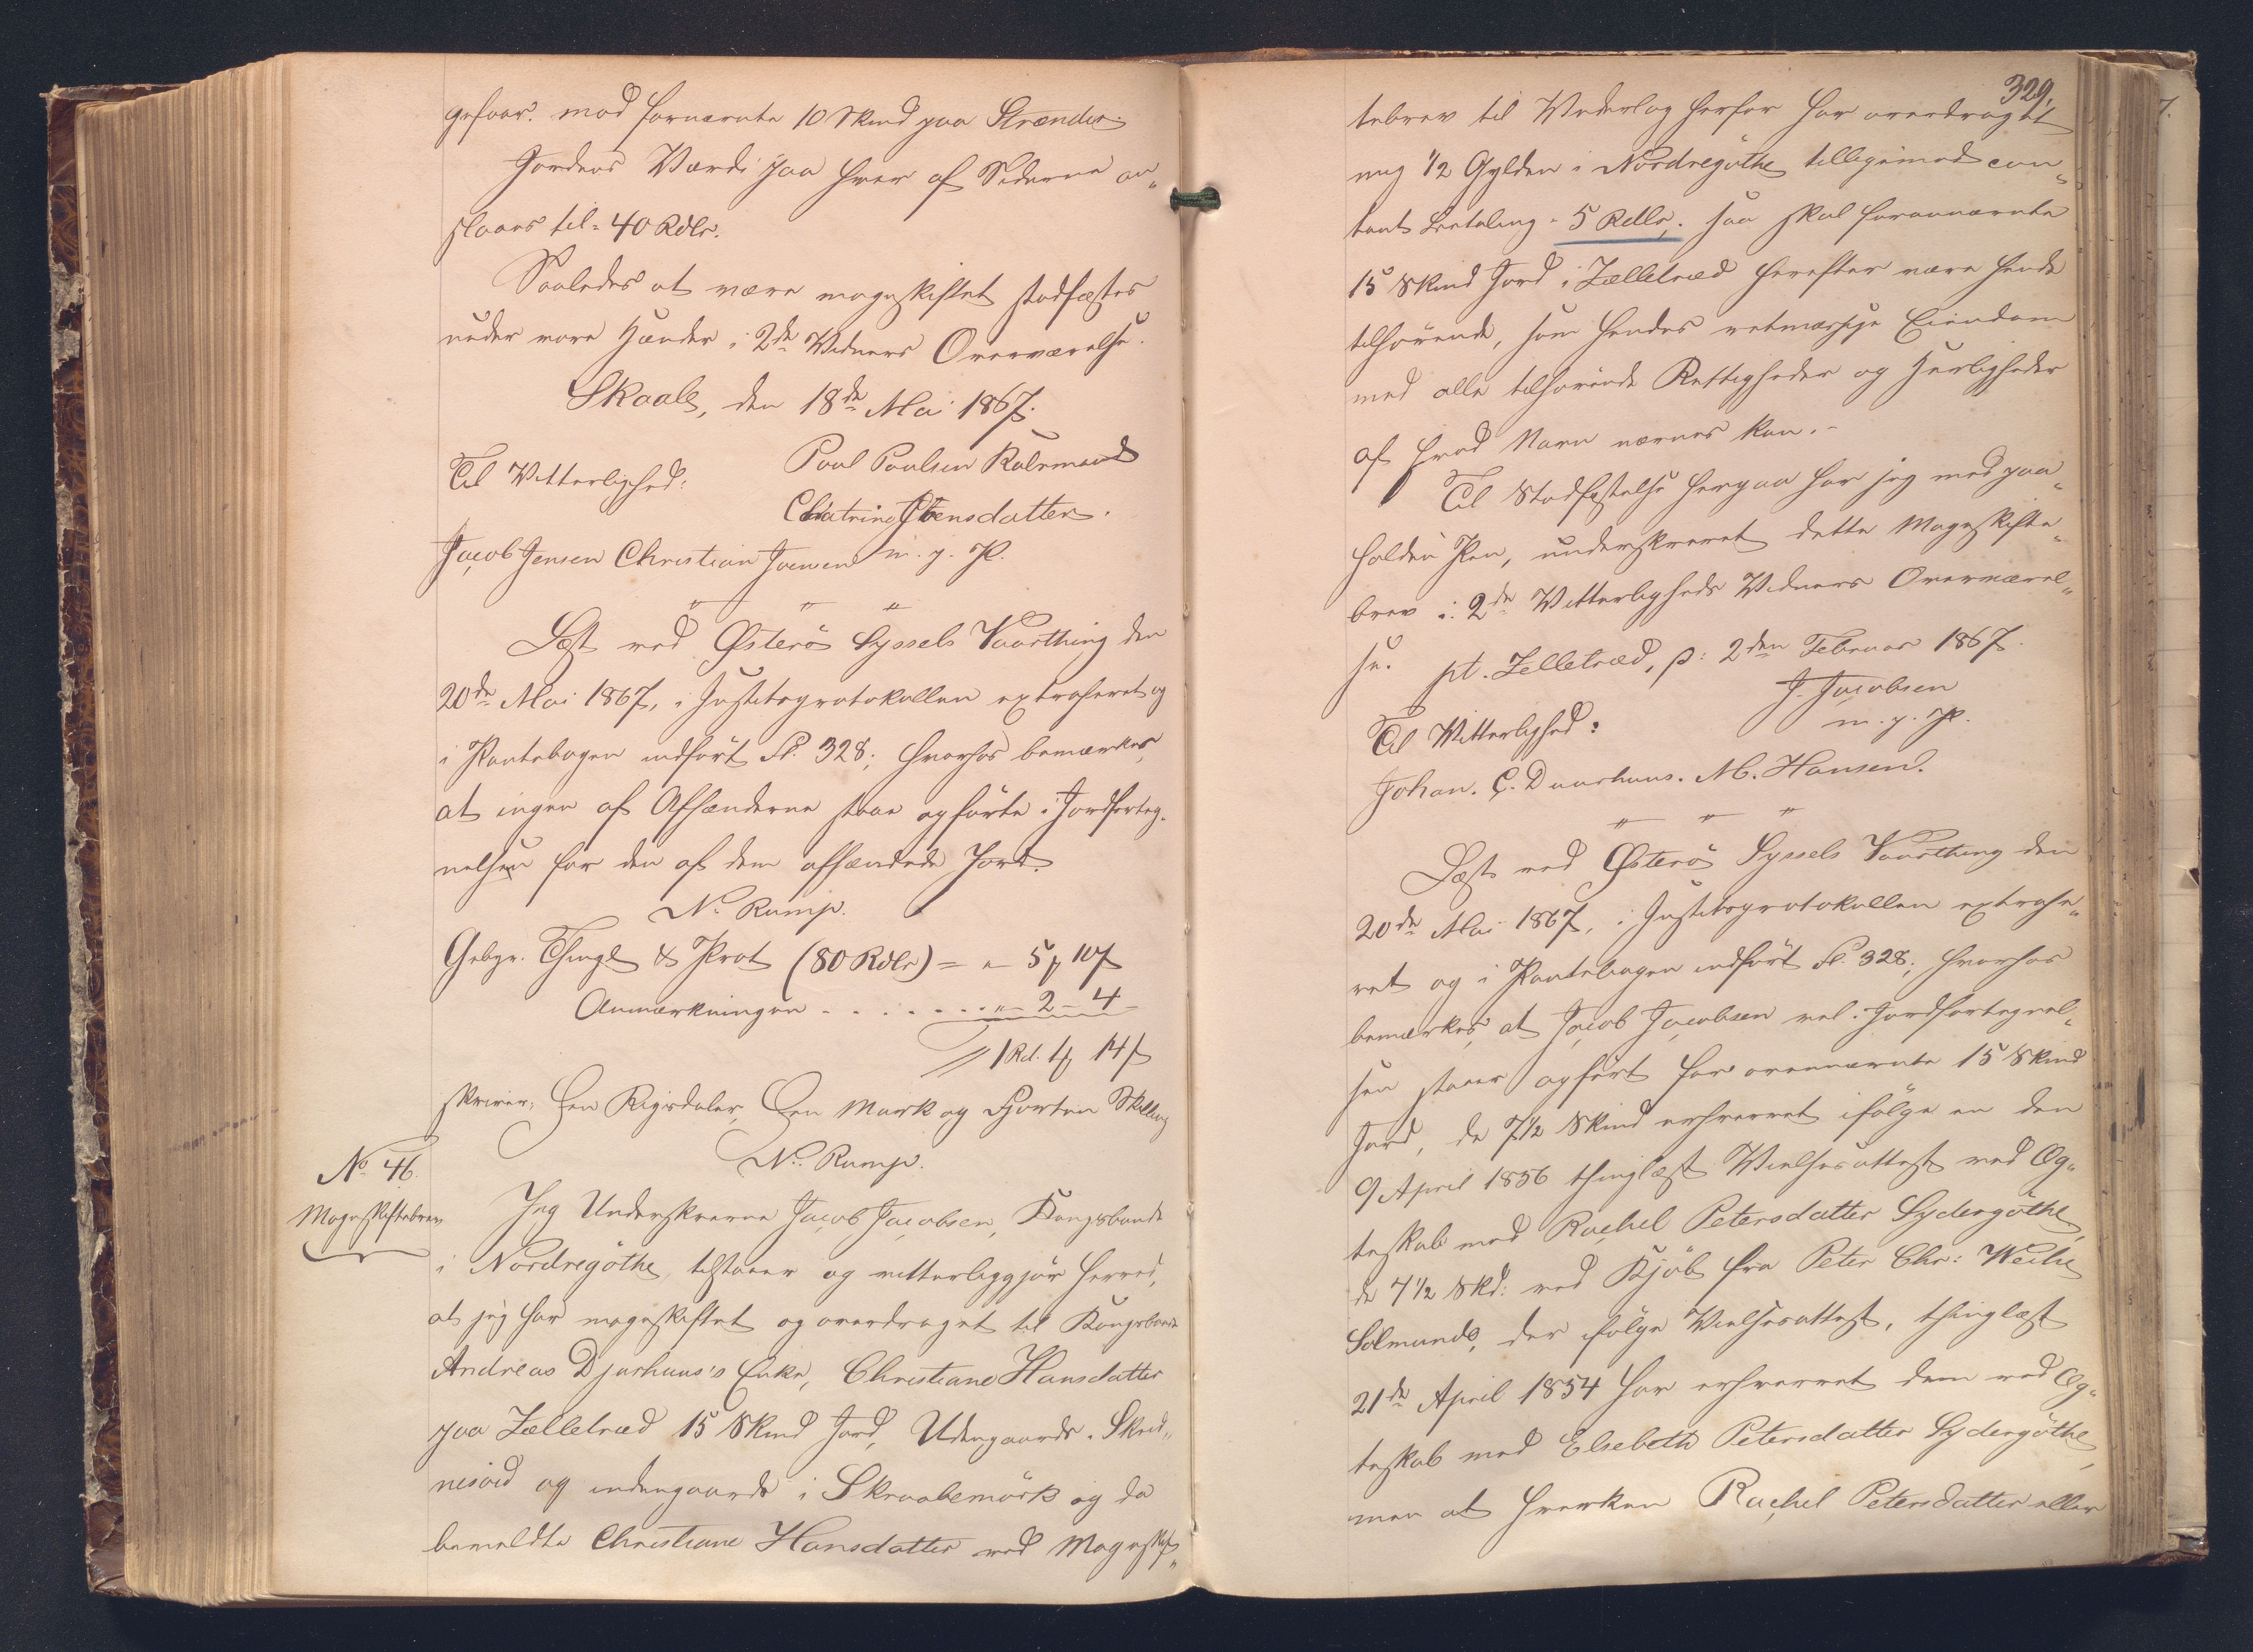 gefaar. mod fornævnte 10 Skind paa Strænder.
Jordens Værdi paa hver af Siderne an„
slaaes til = 40 Rdlr.
Saaledes at være mageskiftet stadfæstes
under vore Hænder i 2de Vidners Overværelse.
Skaale, den 18de Mai 1867.
Poul Poulsen Kalvmand
Til Vitterlighed:
Chatrine Joensdatter.
Jacob Jensen Christian Joensen m. p. P.
„ „ „
Læst ved Østerö Syssels Vaarthing den
20de Mai 1867, i Justitsprotokollen extraheret og
i Pantebogen indfört Fl. 328; hvorhos bemærkes,
at ingen af Afhænderne staae opførte i Jordforteg„
nelsen for den af dem afhændede Jord.
N. Rump.
Gebyr. Thingl & Prot (80 Rdlr) = „ – 5 ₰ 10 ß
Anmærkningen - . . . . . . . „ – 2 – 4 –
1 Rd. 1 ₰ 14 ß
skriver, Een Rigsdaler, Een Mark og Fjorten Skilling
N. Rump.
No 46.
Mageskiftebrev
Jeg Underskrevne Jacob Jacobsen, Kongsbonde
i Nordregöthe, tilstaaer og vitterliggjør herved,
at jeg har mageskiftet og overdraget til Kongsbonde
Andreas Djurhuus's Enke, Christiane Hansdatter
paa Zelletræd 15 Skind Jord, Udengaards i Skred„
nisöid og indengaards i Skraabemörk og da
bemeldte Christiane Hansdatter ved Mageskif„
329,
tebrev til Vederlag herfor har overdraget
mig 1/2 Gylden i Nordregöthe tilligemed con„
tant Betaling - 5 Rdlr,. saa skal forannævnte
15 Skind Jord i Zelletræd herefter være hende
tilhørende, som hendes retmæssige Eiendom
med alle tilhørende Rettigheder og Herligheder
af hvad Navn nævnes kan. -
Til Stadfæstelse herpaa har jeg med paa„
holden Pen, underskrevet dette Mageskifte„
brev i 2de Vitterligheds Vidners Overværel„
se. pt. Zelletræd, p: 2den Februar 1867.
J. Jacobsen
Til Vitterlighed: m. p. P.
Johan. C. Duurhuus. M. Hansen.
„ „ „
Læst ved Østerö Syssels Vaarthing den
20de Mai 1867, i Justitsprotokollen extrahe„
ret og i Pantebogen indfört Fl. 328; hvorhos
bemærkes, at Jacob Jacobsen vel i Jordfortegnel„
sen staaer opfört for ovennævnte 15 Skind
Jord, de 7 1/2 Skind erhvervet ifölge en den
9 April 1856 thinglæst Vielsesattest ved Æg„
teskab med Rachel Petersdatter Sydergöthe,
de 7 1/2 Skd: ved Kjöb fra Peter Chr: Weihe
Solmunde, der ifölge Vielsesattest, thinglæst
21de April 1854 har erhvervet dem ved Æg„
teskab med Elsebeth Petersdatter Sydergöthe,
men at hverken Rachel Petersdatter eller